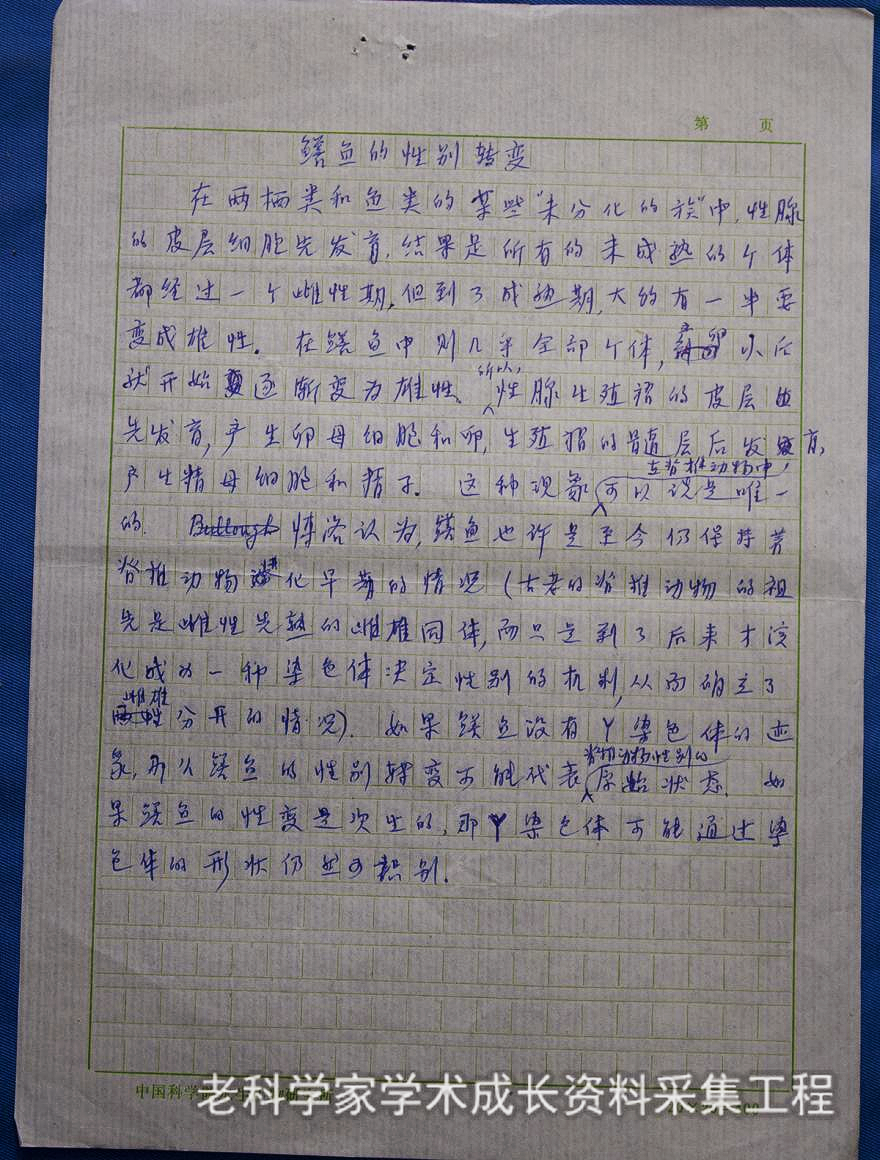 第 页
鳝鱼的性别转变
在两栖类和鱼类的某些"未分化的族"中,性腺
的皮层细胞先发育,结果是所有的未成熟的个体
都经过一个雌性期,但到了成熟期,大约有一半要
变成雄性。在鳝鱼中则几乎全部个体,产卵以后
就开始逐渐变为雄性。所以,性腺生殖褶的皮层
先发育,产生卵母细胞和卵,生殖褶的髓层后发育,
产生精母细胞和精子。这种现象在脊椎动物中,可以说是唯一
的。Bullough 博洛认为,鳝鱼也许是至今仍保持着
脊椎动物进化早期的情况(古老的脊椎动物的祖
先是雌性先熟的雌雄同体,而只是到了后来才演
化成为一种染色体决定性别的机制,从而确立了
雌雄分开的情况)。如果鳝鱼没有Y染色体的迹
象,那么鳝鱼的性别转变可能代表脊椎动物性别的原始状态。如
果鳝鱼的性变是次生的,那Y染色体可能通过染
色体的形状仍然可识别.
中国科学院
老科学家学术成长资料采集工程